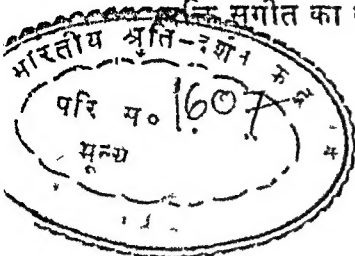 संगीत का
भारतीय श्रुति-दर्शन केंद्र
परि स० 1607
मूल्य